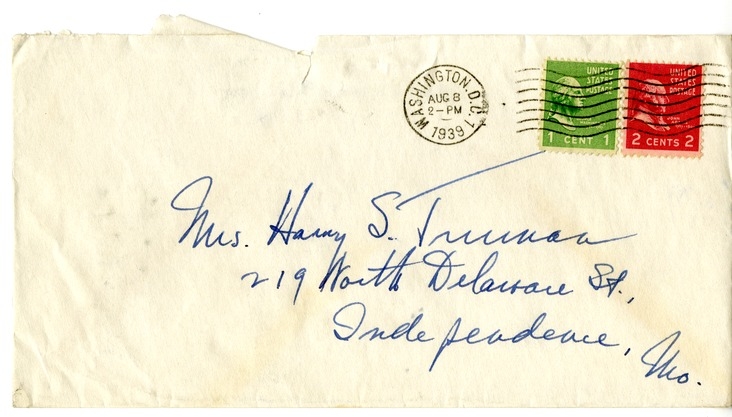 WASHINGTON, D.C. 1
AUG 8
2-PM
1939
UNITED
STATES
POSTAGE
1 CENT 1
UNITED
STATES
POSTAGE
2 CENTS 2
Mrs. Harry S. Truman
219 North Delaware St.,
Independence, Mo.